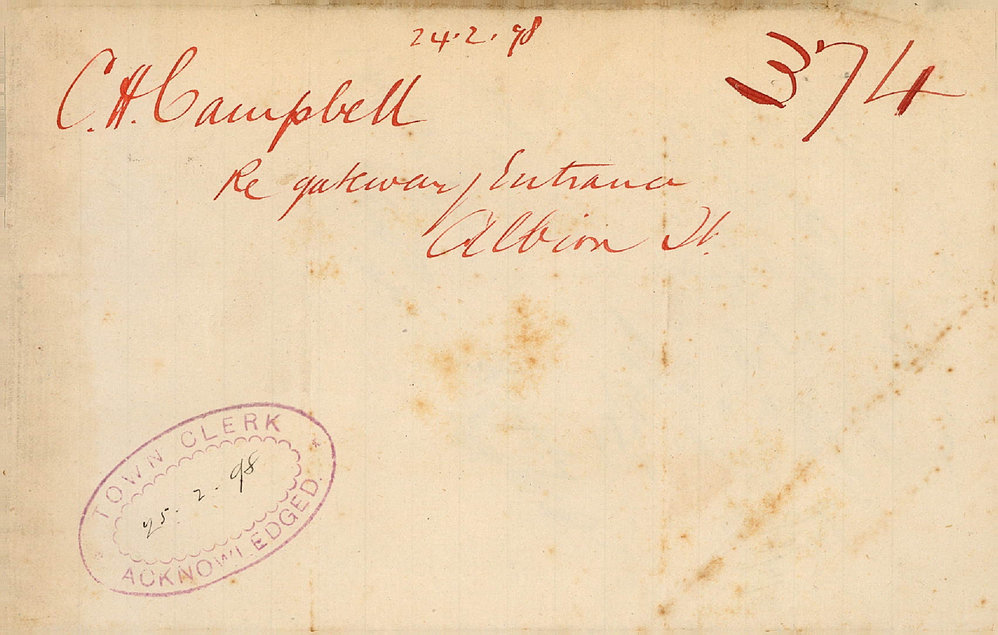 24.2.98
374
C.H. Campbell
Re gateway Entrance
Albion St.
TOWN CLERK
25.2.98
ACKNOWLEDGED.